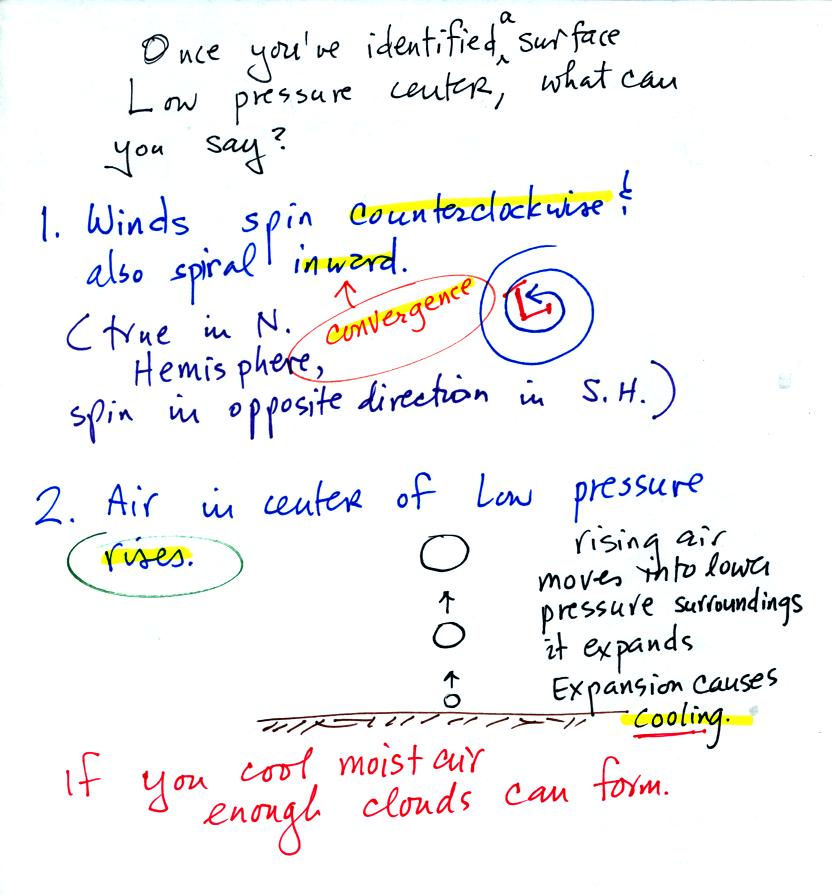 Once you've identified a surface
Low pressure center, what can
you say?
1. Winds spin counterclockwise &
also spiral inward.
convergence
L
(true in N.
Hemisphere,
spin in opposite direction in S.H.)
2. Air in center of Low pressure
rises.
rising air
moves into lower
pressure surroundings
it expands
Expansion causes
cooling.
If you cool moist air
enough clouds can form.